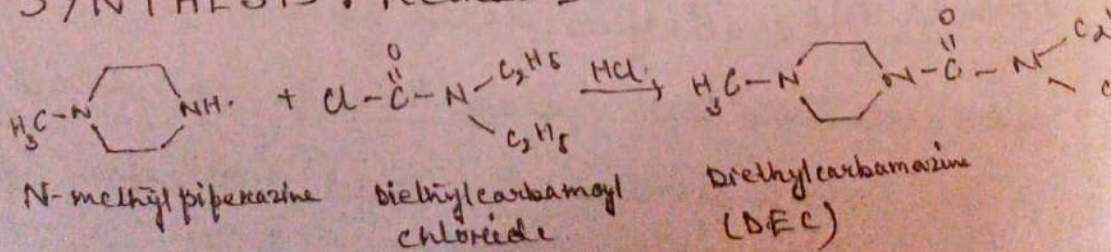 SYNTHESIS:
H₃C-N NH. + Cl-C(=O)-N C₂H₅ C₂H₅ HCl H₃C-N N-C(=O)-N C₂
N-methyl piperazine Diethylcarbamoyl chloride Diethylcarbamazine (DEC)